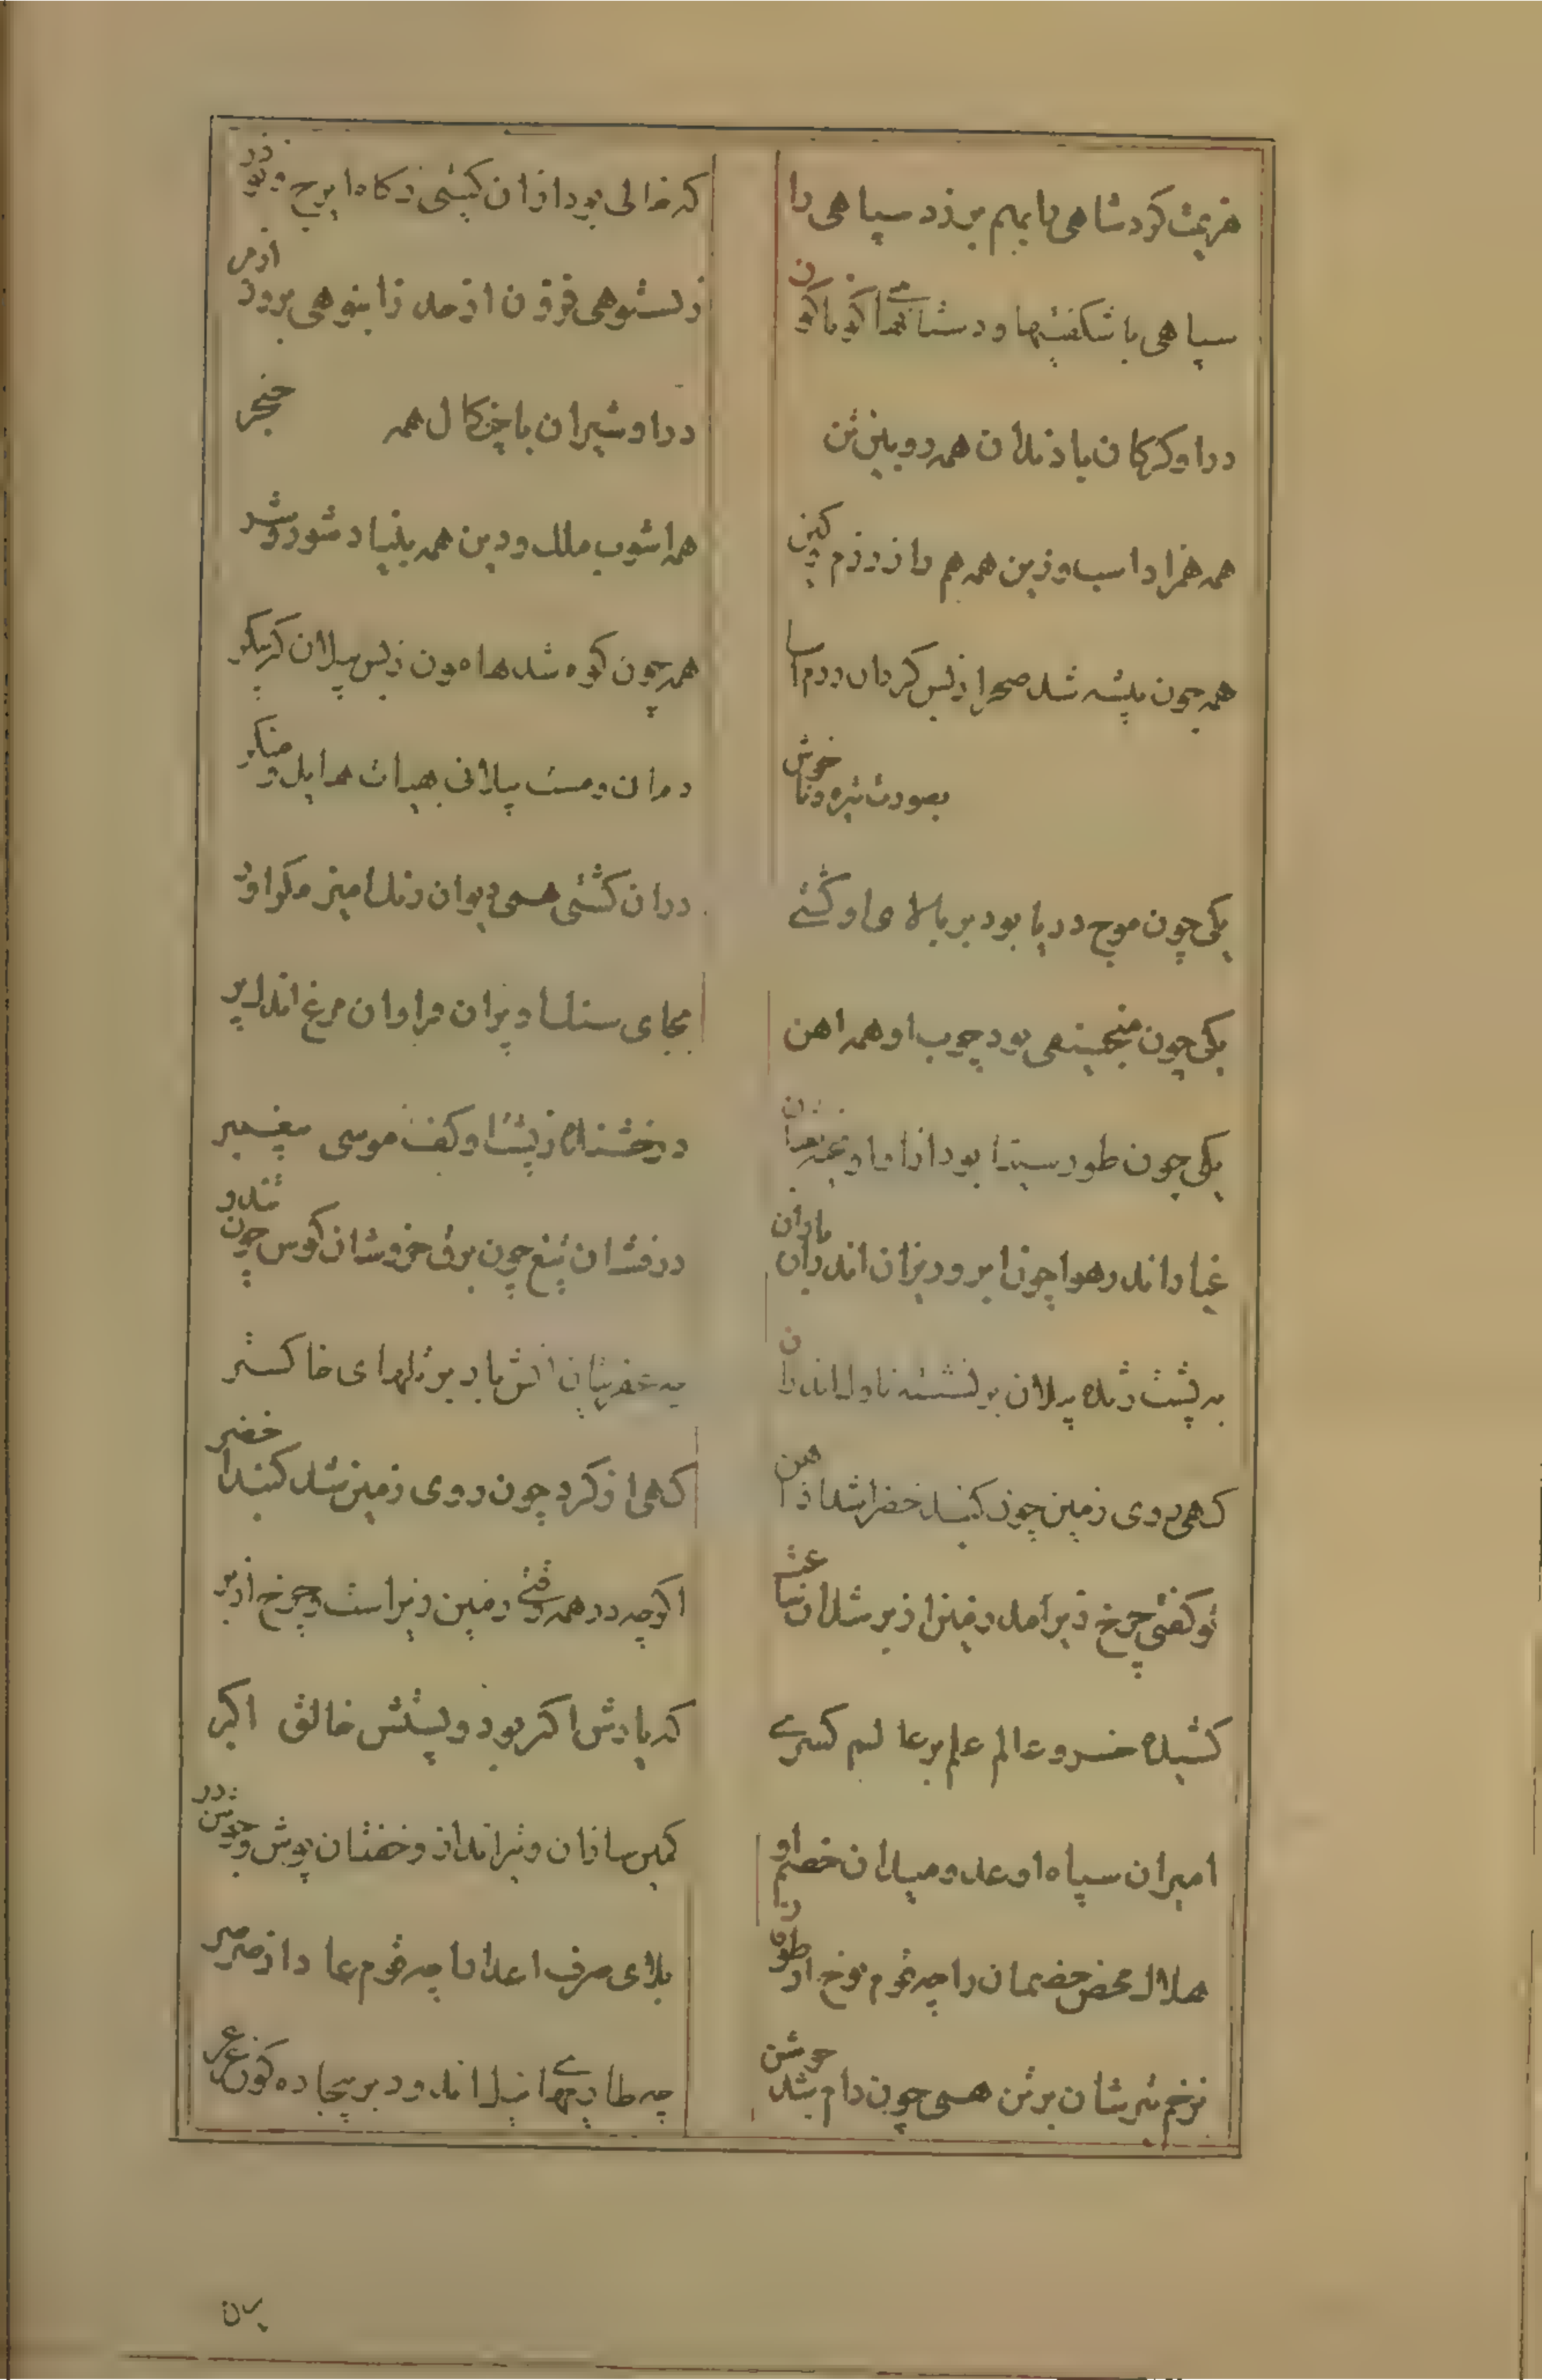 هزیمت کرد شاهی را بهم بر زد سپاهی را
که خالی بود از ان گیتی ز گاه ایرج و نوذر
سپاهی با شگفتیها و دستانهای گوناگون
ز نستوهی فزون از حد ز انبوهی برون از مر
در او گرگان با دندان همه روبین تن
در او شیران با چنگال همه خنجر
همه همزاد اسب و زین همه همراز رزم و کین
همه اشوب ملک و دین همه بنیاد شور و شر
همه چون بیشه شد صحرا ز بس کردان ردم اسا
همه چون کوه شد هامون ز بس پیلان که پیکر
بصورت تیره و ناخوش
دمان و مست پیلانی بهیات
یکی چون موج دریا بود بر بالای او کشتی
در ان کشتی همی دیوان رنگ امیز
یکی چون منجنیقی بود چوب او همه اهن
بجای سنگ پران مرغ اندر بر
یکی چون طور سینا بود
درخشنده ز پشت او کف موسی پیغمبر
غبار اندر هوا چون ابر و ریزان اندر ان باران
درفشان تیغ چون برق خروشان کوس چون تندر
به پشت ژنده پیلان بر نشسته ناوک اندازان
چه عفریتان اتش بار بر تلهای خاکستر
گهی روی زمین چون گنبد خضرا شد از اهن
گهی از گرد چون روی زمین شد گنبد اخضر
تو گفتی چرخ زیر امد زمین از بر شد ان ساعت
اگر چه در همه وقتی زمین زیر است و چرخ از بر
کشیده خسرو عالم علم بر عالم کسری
که یارش اکثر بود و پشتش خالق اکبر
امیران سپاه او عدو میدان خصم او
کمین سازان و تیر انداز و خفتان پوش و جوشن در
هلاک محض خصمان را چه قوم نوح از طوفان
بلای صرف اعدا را چه قوم عاد از صرصر
ز زخم تیرشان بر تن همی چون دام شد جوشن
چه طاریهای نیل اندود بر بیجاده گون عرعر